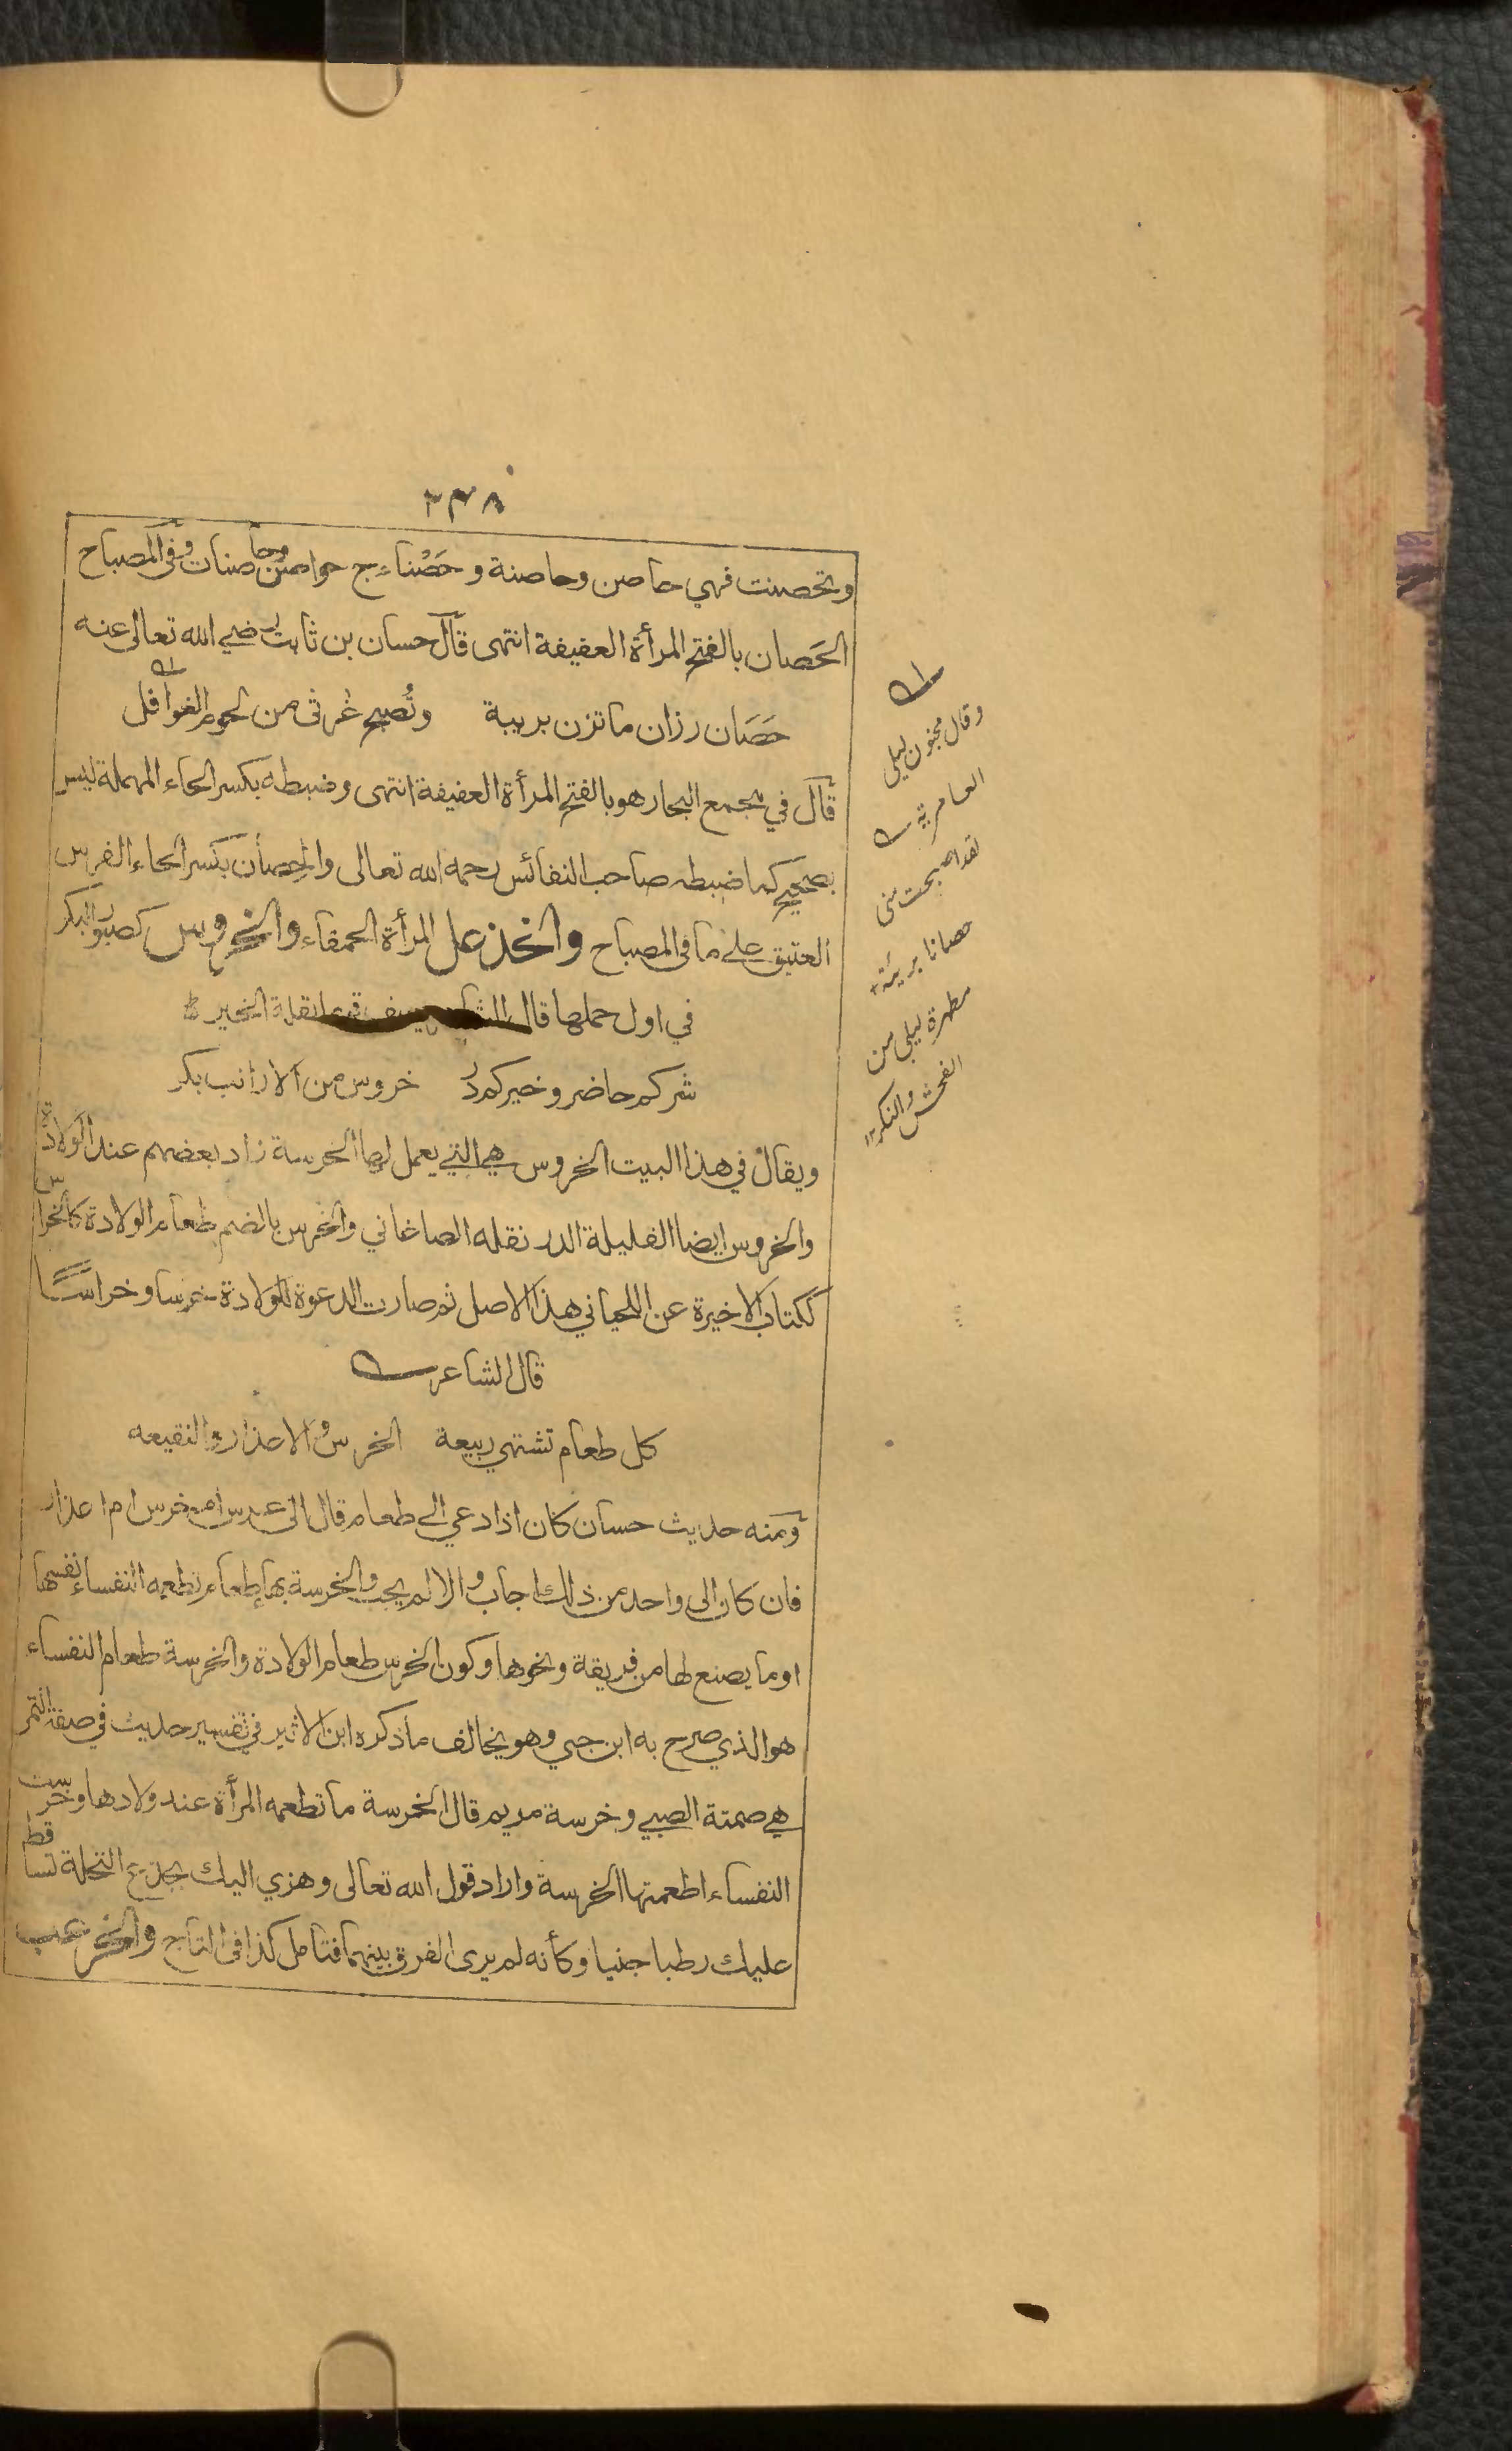 ٢٣٨
وتحصنت فهي حاصن وحاصنة وحَصْناء ج حواصن وحاصنات وفي المصباح
الحَصان بالفتح المرأة العفيفة انتهى قال حسان بن ثابت رضي الله تعالى عنه
حَصَان رزان ما تزن بريبة وتُصبح غرثى من لحوم الغوافل
قال في مجمع البحار هو بالفتح المرأة العفيفة انتهى وضبطه بكسر الحاء المهملة ليس
بصحيح كما ضبطه صاحب النفائس رحمه الله تعالى والحِصان بكسر الحاء الفرس
العتيق على ما في المصباح والخذعل المرأة الحمقاء والخروس كصبور البكر
في اول حملها قال الشاعر يصف قوما بقلة الخير
شركم حاضر وخيركم درّ خروس من الارانب بكر
ويقال في هذا البيت الخروس هي التي يعمل لها الخرسة زاد بعضهم عند الولادة
والخروس ايضا القليلة الدر نقله الصاغاني والخرس بالضم طعام الولادة كالخراس
ككتاب الاخيرة عن اللحياني هذا الاصل ثم صارت الدعوة للولادة خرسا وخراسًا
قال الشاعر
كل طعام تشتهي ربيعة الخرس والاعذار والنقيعه
ومنه حديث حسان كان اذا دعي الى طعام قال الى عرس ام خرس ام اعذار
فان كان الى واحد من ذلك اجاب والا لم يجب والخرسة بهاء طعام تطعمه النفساء نفسها
او ما يصنع لها من فريقة ونحوها وكون الخرس طعام الولادة والخرسة طعام النفساء
هو الذي صرح به ابن جني وهو يخالف ما ذكره ابن الاثير في تفسير حديث في صفة التمر
هي صمتة الصبي وخرسة مريم قال الخرسة ما تطعمه المرأة عند ولادها وخرست
النفساء اطعمتها الخرسة واراد قول الله تعالى وهزي اليك بجذع النخلة تساقط
عليك رطبا جنيا وكأنه لم يرى الفرق بينهما فتأمل كذا في التاج والخرعب
وقال مجنون ليلى
العامرية
لقد اصبحت منى
حصانا بريئة
مطهرة ليلى من
الفحش والنكر